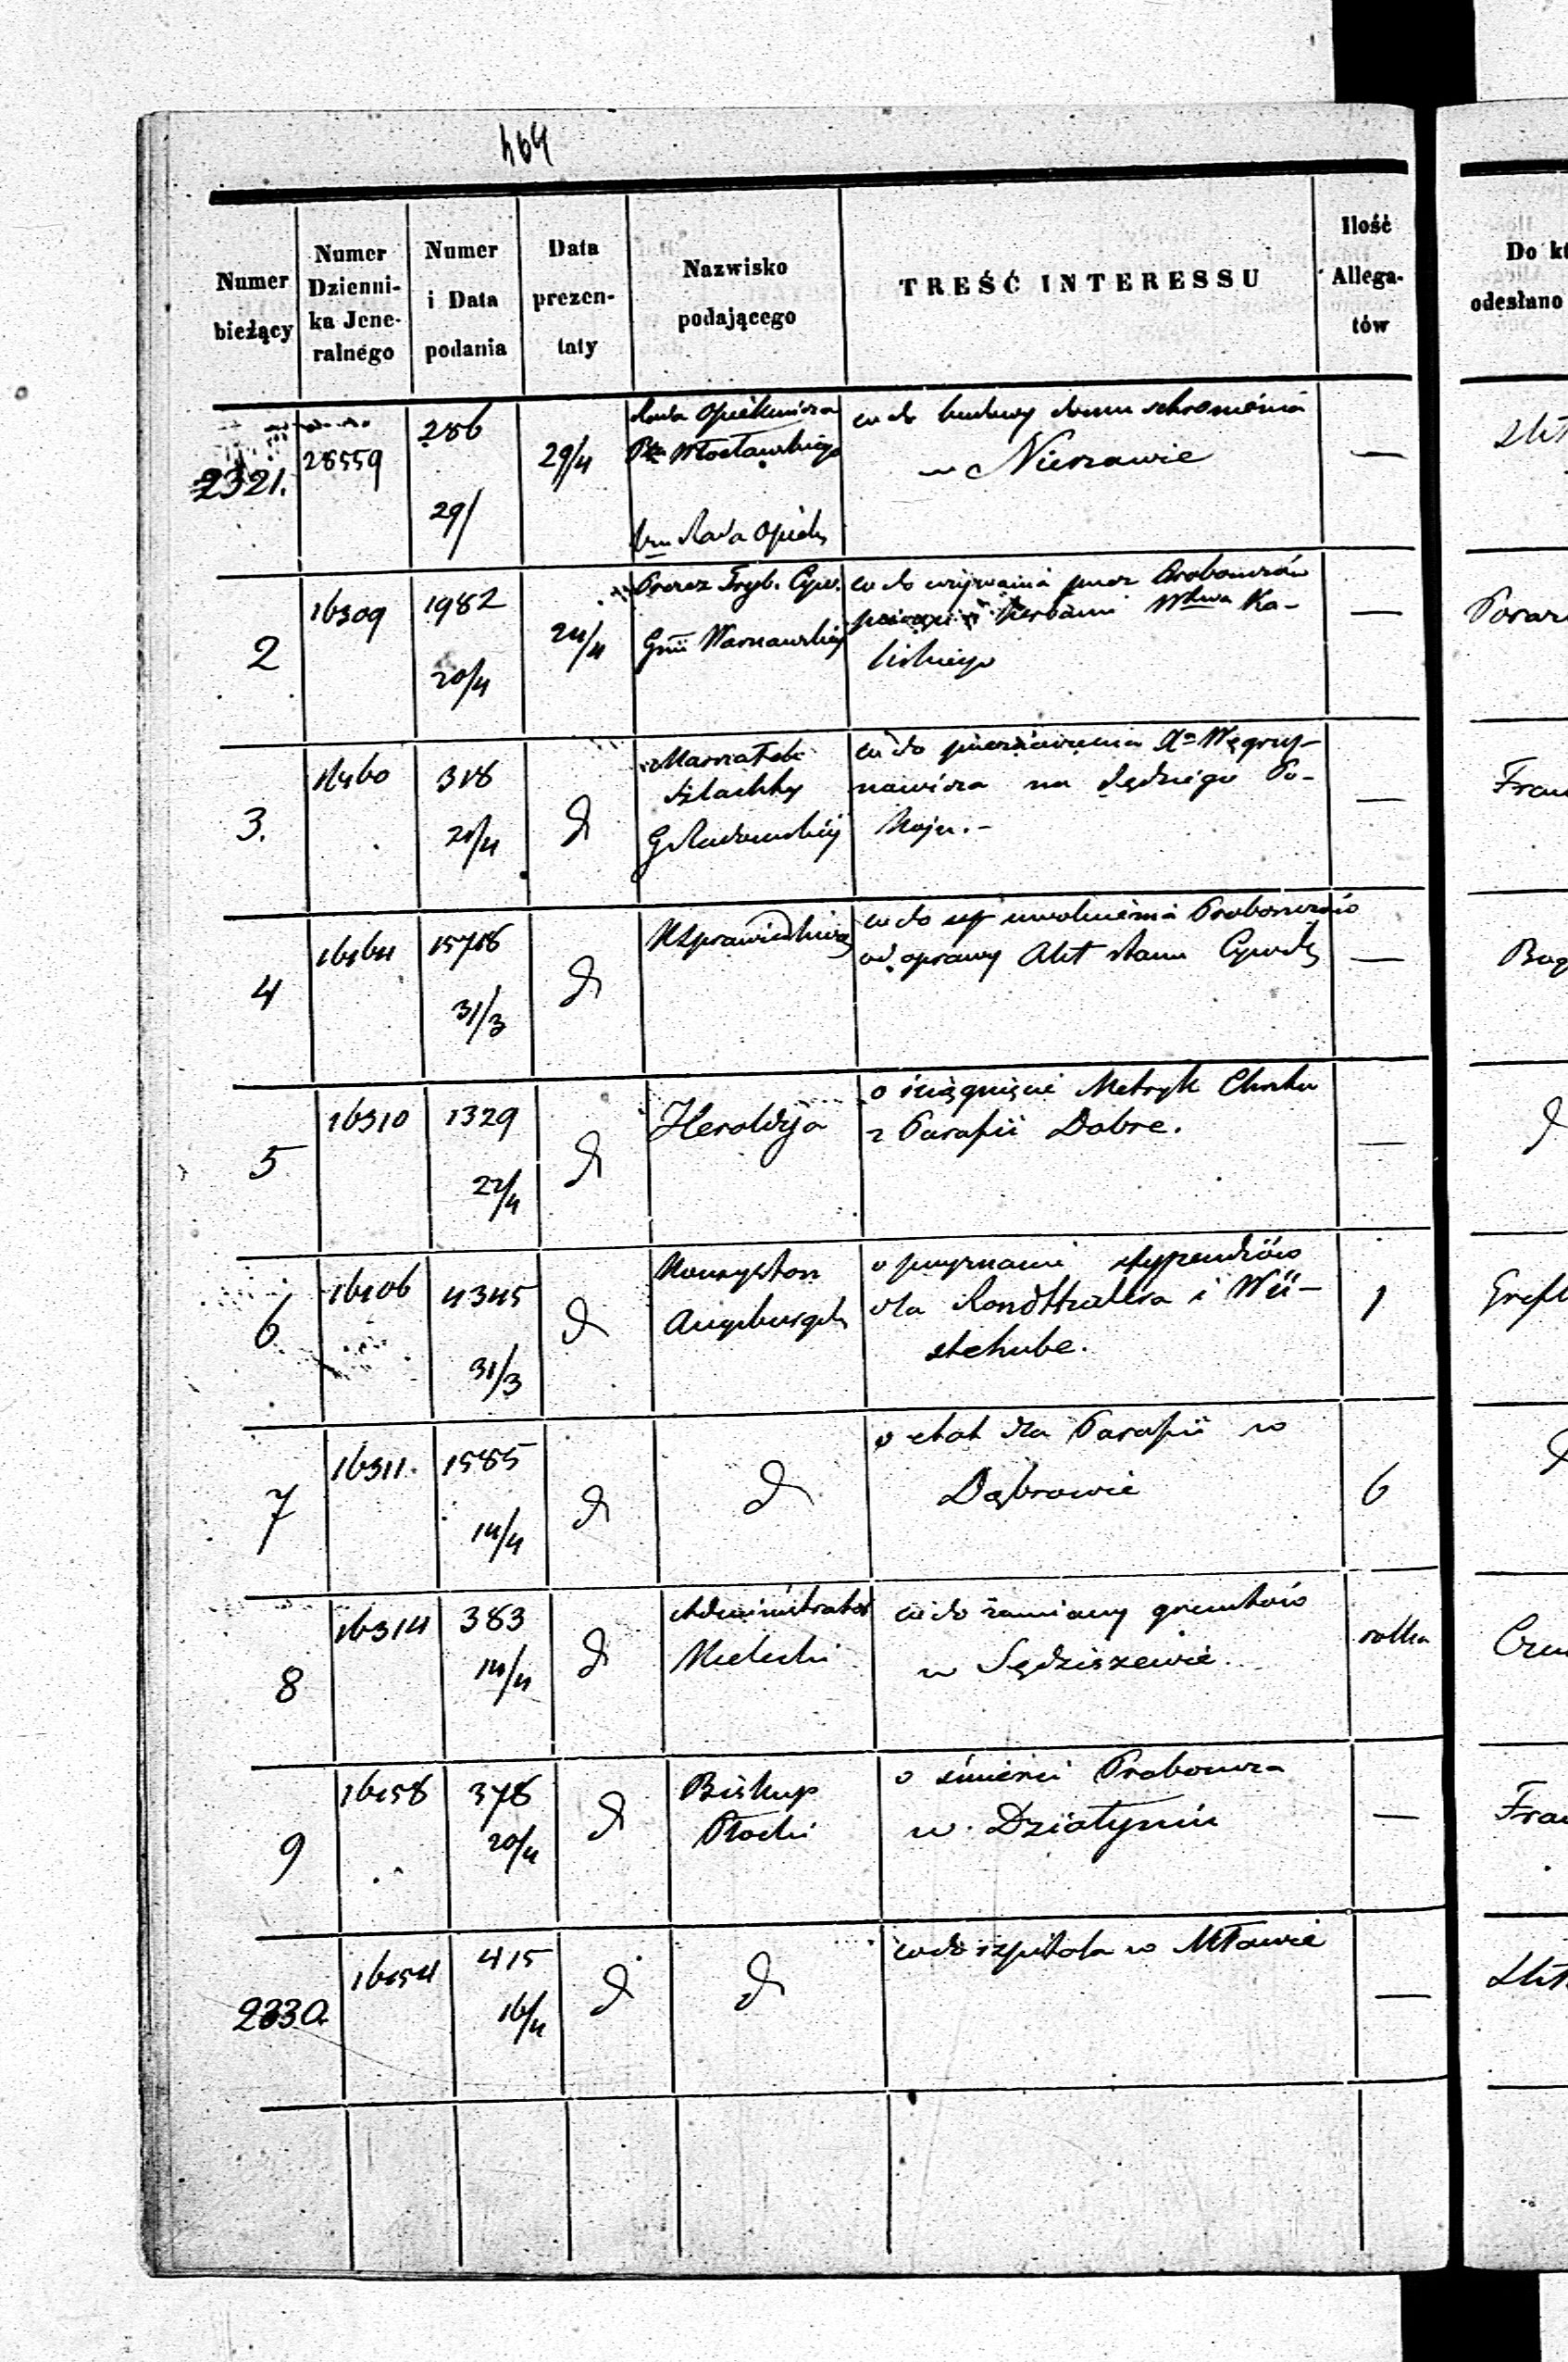 464
Numer bieżący
Numer Dzienni- ka Jene- ralnego
Numer i Data podania
Data prezen- taty
Nazwisko podającego
TREŚĆ INTERESSU
Ilość Allega- tów
Do k
odesłano
2321.
28559
286
29/
29/4
Rada Opiekuńcza
Włocławskiego
Rada Opiek
co do budowy domu schronienia
w Nieszawie
—
2
16309
1982
20/4
24/4
Prezes Tryb. Cyw.
Gnii Warszawskiej
co do używania przez Proboszczów
herbami Wdztwa Ka-
liskiego
—
3.
318
21/4
d
Marszałek
Szlachty
G Radomskiej
co do Xa Węgrzy-
nowicza na Sędziego Po-
koju.-
—
4
15718
31/3
d
KSprawiedliwoś
co do uwolnienia Proboszczów
od oprawy Akt stanu Cywil
—
Bog
5
16310
1329
22/4
d
Heroldyja
o ściągnięcie Metryk Chrztu
z Parafii Dobre.
—
d
6
16106
4345
31/3
d
Konsystorz
Augsburgsk
o przyznanie stypendiów
dla i Wü-
stehube.
1
7
16311.
1585
14/4
d
d
o etat dla Parafii w
Dąbrowie
6
d
8
16314
383
14/4
d
Administrator
Kielecki
co do zamiany gruntów
w Sędziszewie.
rolka
9
16158
378
20/4
d
Biskup
Płocki
o śmierci Proboszcza
w Działyniu
—
2330.
16154
415
16/4
d
d
co do szpitala w Mławie
—